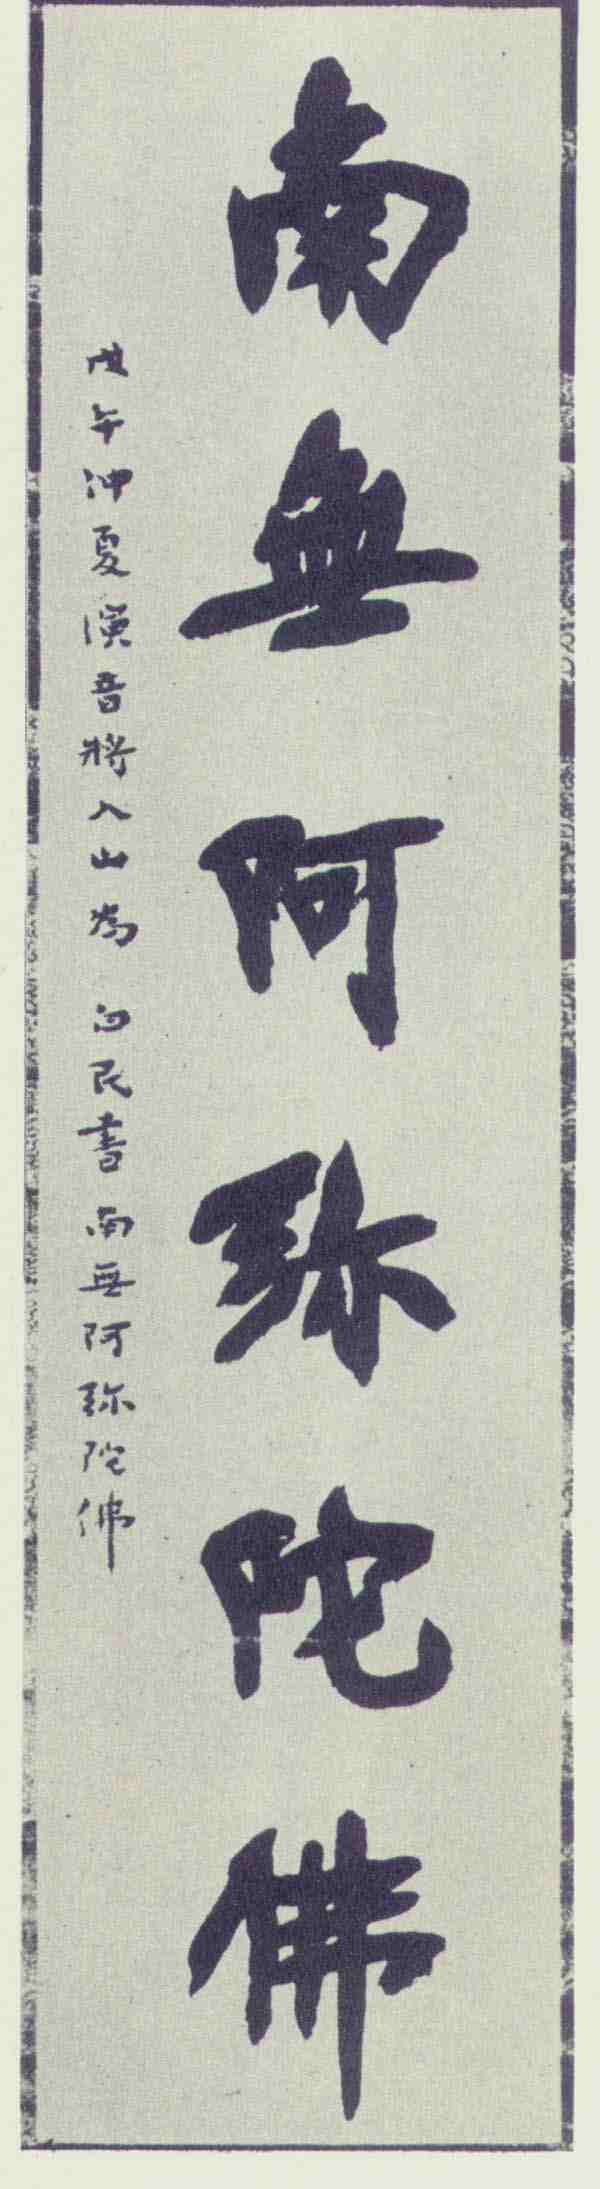 南無阿弥陀佛
戊午仲夏演音將入山為 白民書南無阿弥陀佛